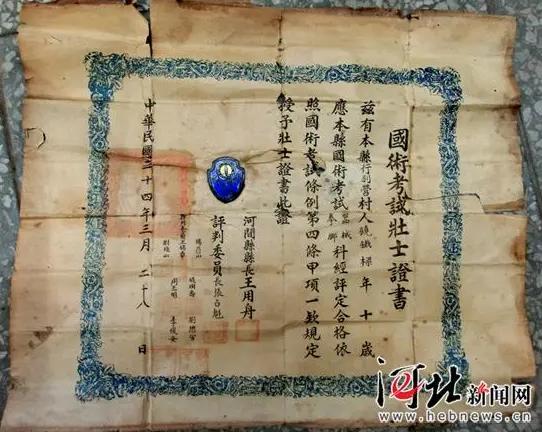 國術考試壯士證書
茲有本縣行別營村人鏡鐵標年十歲
應本縣國術考試器械拳腳科經評定合格依
照國術考試條例第四條甲項一款規定
授予壯士證書此證
河間縣縣長王用舟
評判委員長張占魁
中華民國二十四年三月二十八日
河北新闻网
www.hebnews.cn